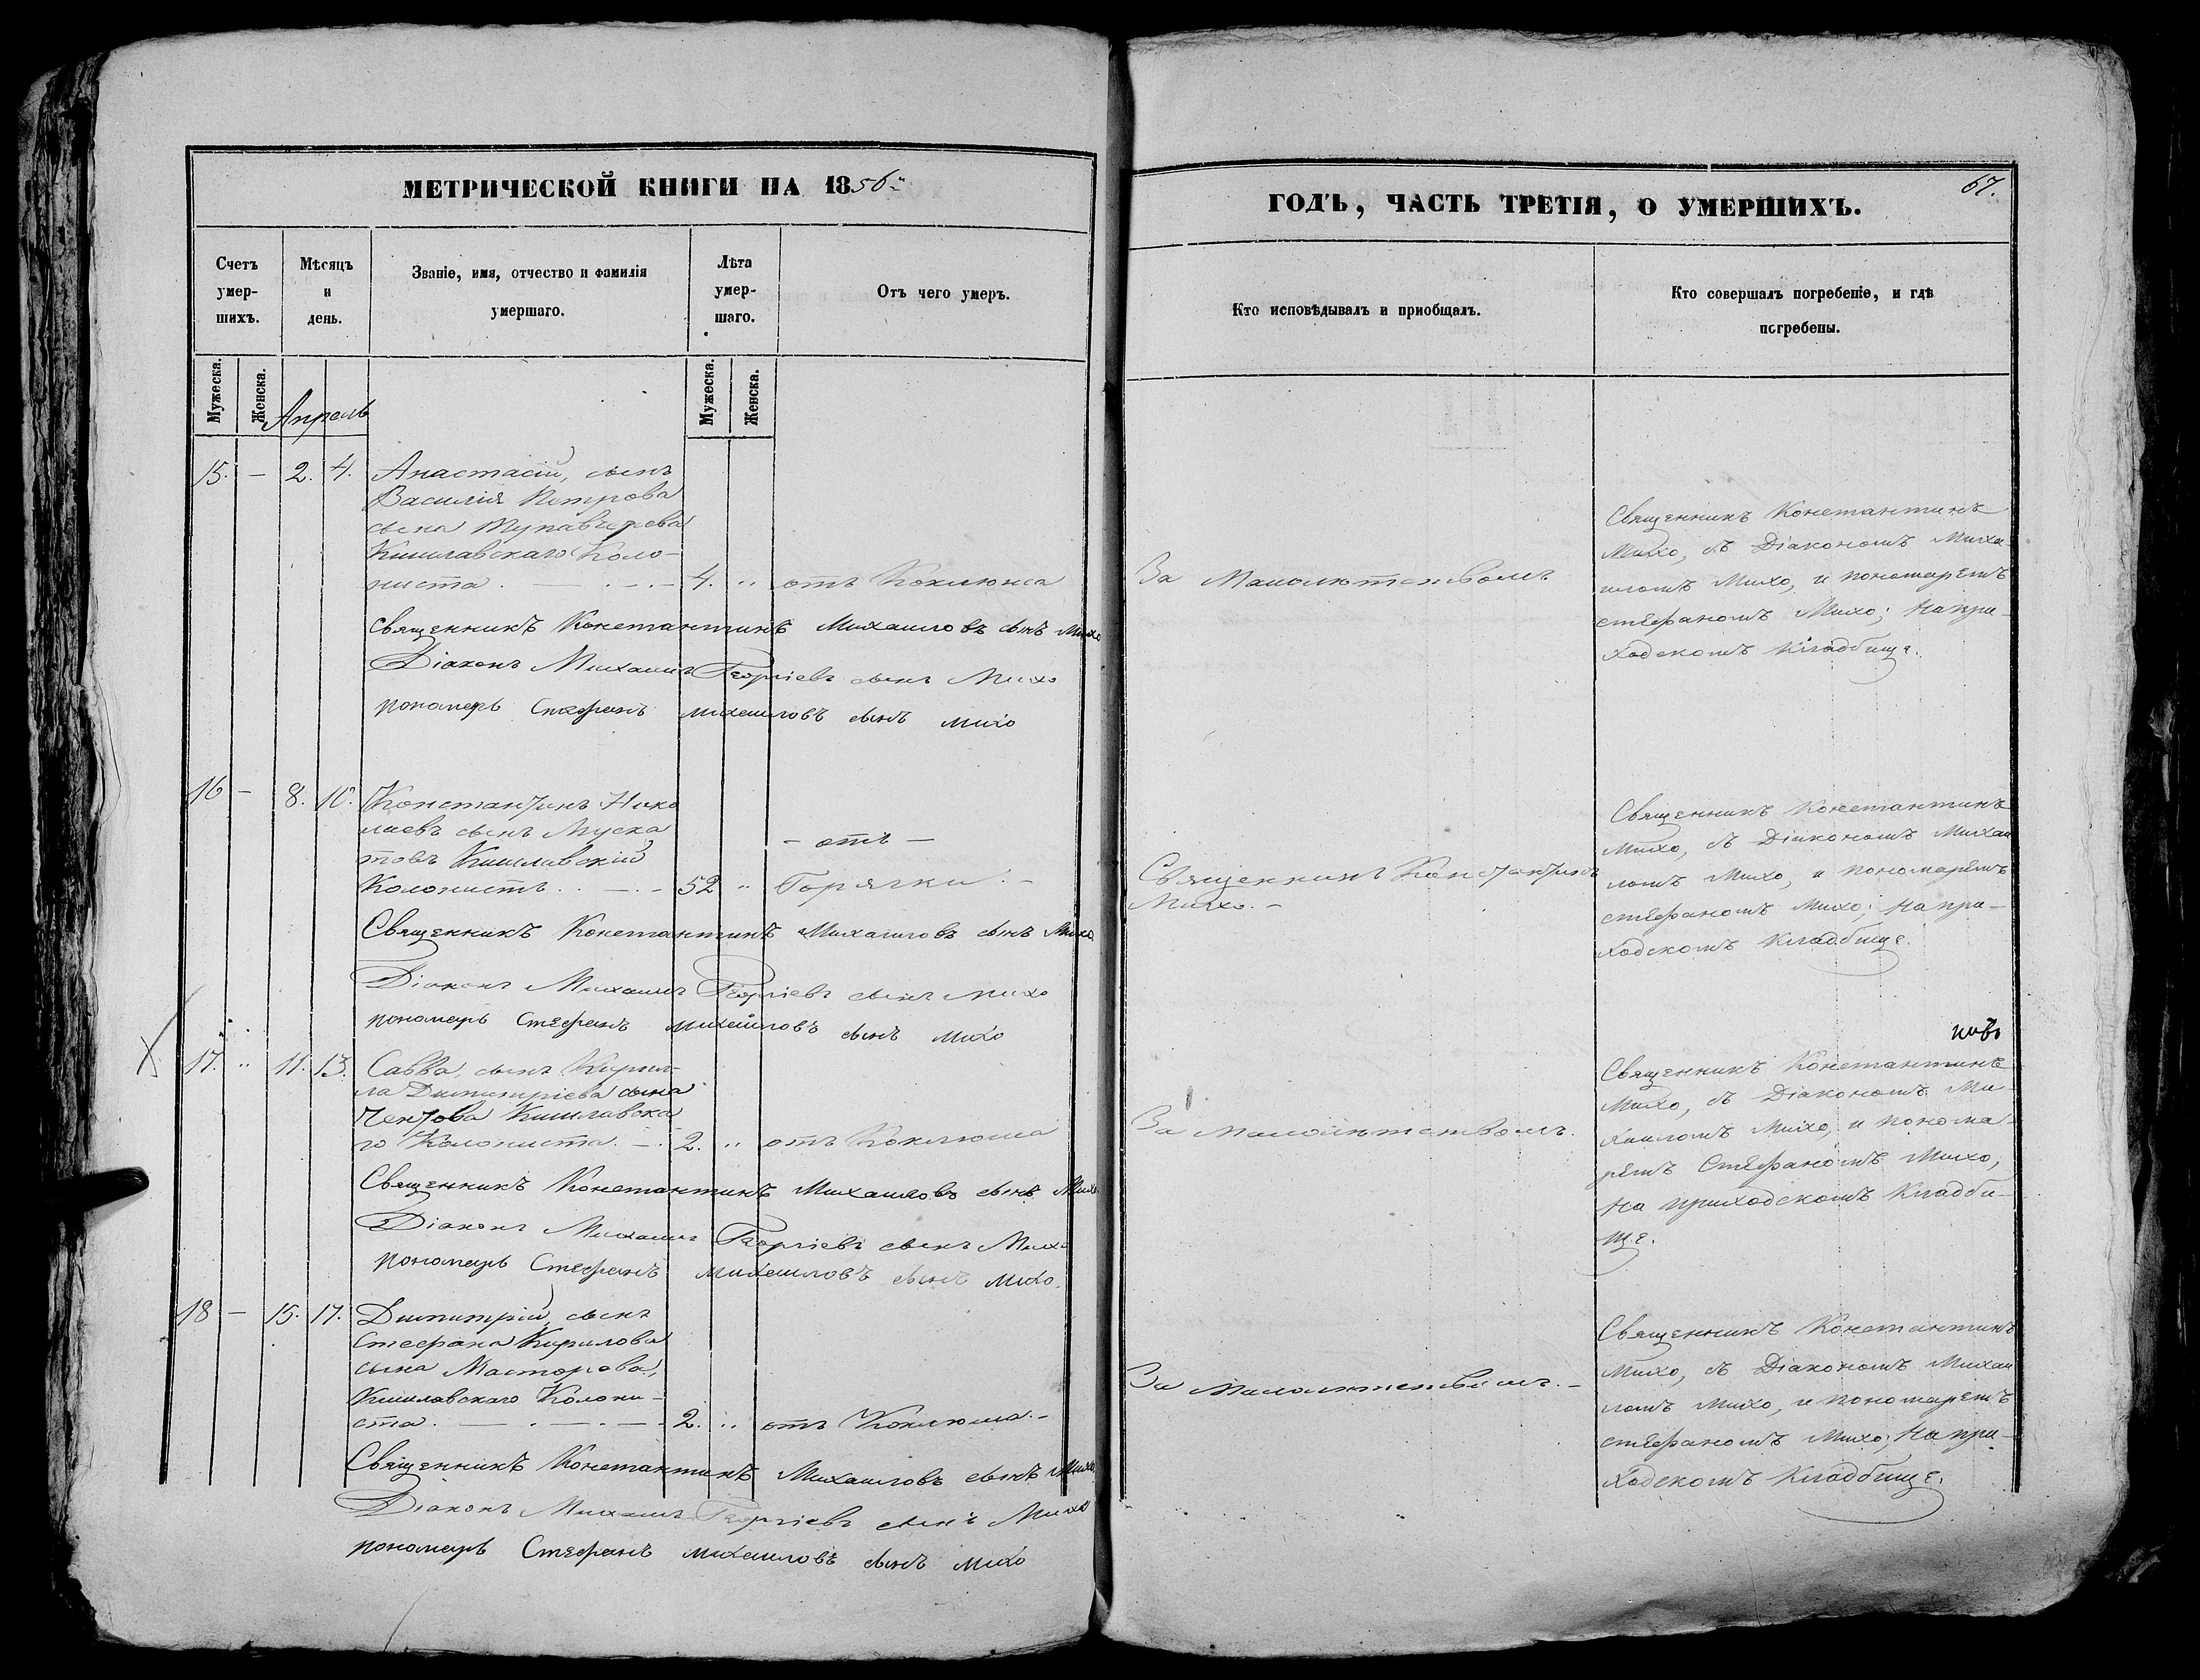 МЕТРИЧЕСКОЙ КНИГИ НА 1856
Счетъ умер-шихъ.
Мѣсяцъ и день.
Званіе, имя, отчество и фамилія умершаго.
Лѣта умер-шаго.
Отъ чего умеръ.
Мужеска. Женска.
Апрель
Мужеска. Женска.
15. — 2. 4. Анастасій, сынъ
Василія Петрова
сына
Кишлавскаго Коло-
ниста. — 4. " отъ Коклюша
Священникъ Константинъ Михаиловъ сынъ Михо
Діаконъ Михаилъ Георгіевъ сынъ Михо
пономарь Стефанъ михаиловъ сынъ михо
16 — 8. 10. Константинъ Нико
лаевъ сынъ Муска
товъ Кишлавскій — отъ —
Колонистъ. — 52 " Горячки. —
Священникъ Константинъ Михаиловъ сынъ Михо
Діаконъ Михаилъ Георгіевъ сынъ михо
пономарь Стефанъ михаиловъ сынъ михо
17. " 11. 13. Савва, сынъ Кирил-
ла Димитріева сына
Чентова Кишлавска
го Колониста. — 2. " отъ Коклюша
Священникъ Константинъ Михаиловъ сынъ Михо
Діаконъ Михаилъ Георгіевъ сынъ Михо
пономарь Стефанъ михаиловъ сынъ михо.
18 — 15. 17. Димитрій, сынъ
Стефана Кирилова
сына Масторова,
Кишлавскаго Колони-
ста. — 2. " отъ Коклюша. —
Священникъ Константинъ Михаиловъ сынъ Михо
Діаконъ Михаилъ Георгіевъ сынъ Михо
пономарь Стефанъ михаиловъ сынъ михо
67.
ГОДЪ, ЧАСТЬ ТРЕТІЯ, О УМЕРШИХЪ.
Кто исповѣдывалъ и приобщалъ.
Кто совершалъ погребеніе, и гдѣ погребены.
За Малолѣтствомъ
Священникъ Константинъ
Михо, съ Діакономъ Миха
иломъ Михо, и пономаремъ
стефаномъ Михо; На при-
ходскомъ Кладбище.
Священникъ Константинъ
Михо. —
Священникъ Константинъ
Михо, съ Діакономъ Михаи
ломъ Михо, и пономаремъ
стефаномъ Михо; На при-
ходскомъ Кладбище.
За малолѣтствомъ.
Священникъ Константинъ
Михо, съ Діакономъ Ми
хаиломъ Михо, и понома-
ремъ Стефаномъ Михо,
на приходскомъ Кладби-
ще.
За Малолѣтствомъ. —
Священникъ Константинъ
Михо, съ Діакономъ Михаи
ломъ Михо, и пономаремъ
стефаномъ Михо; На при-
ходскомъ Кладбище.